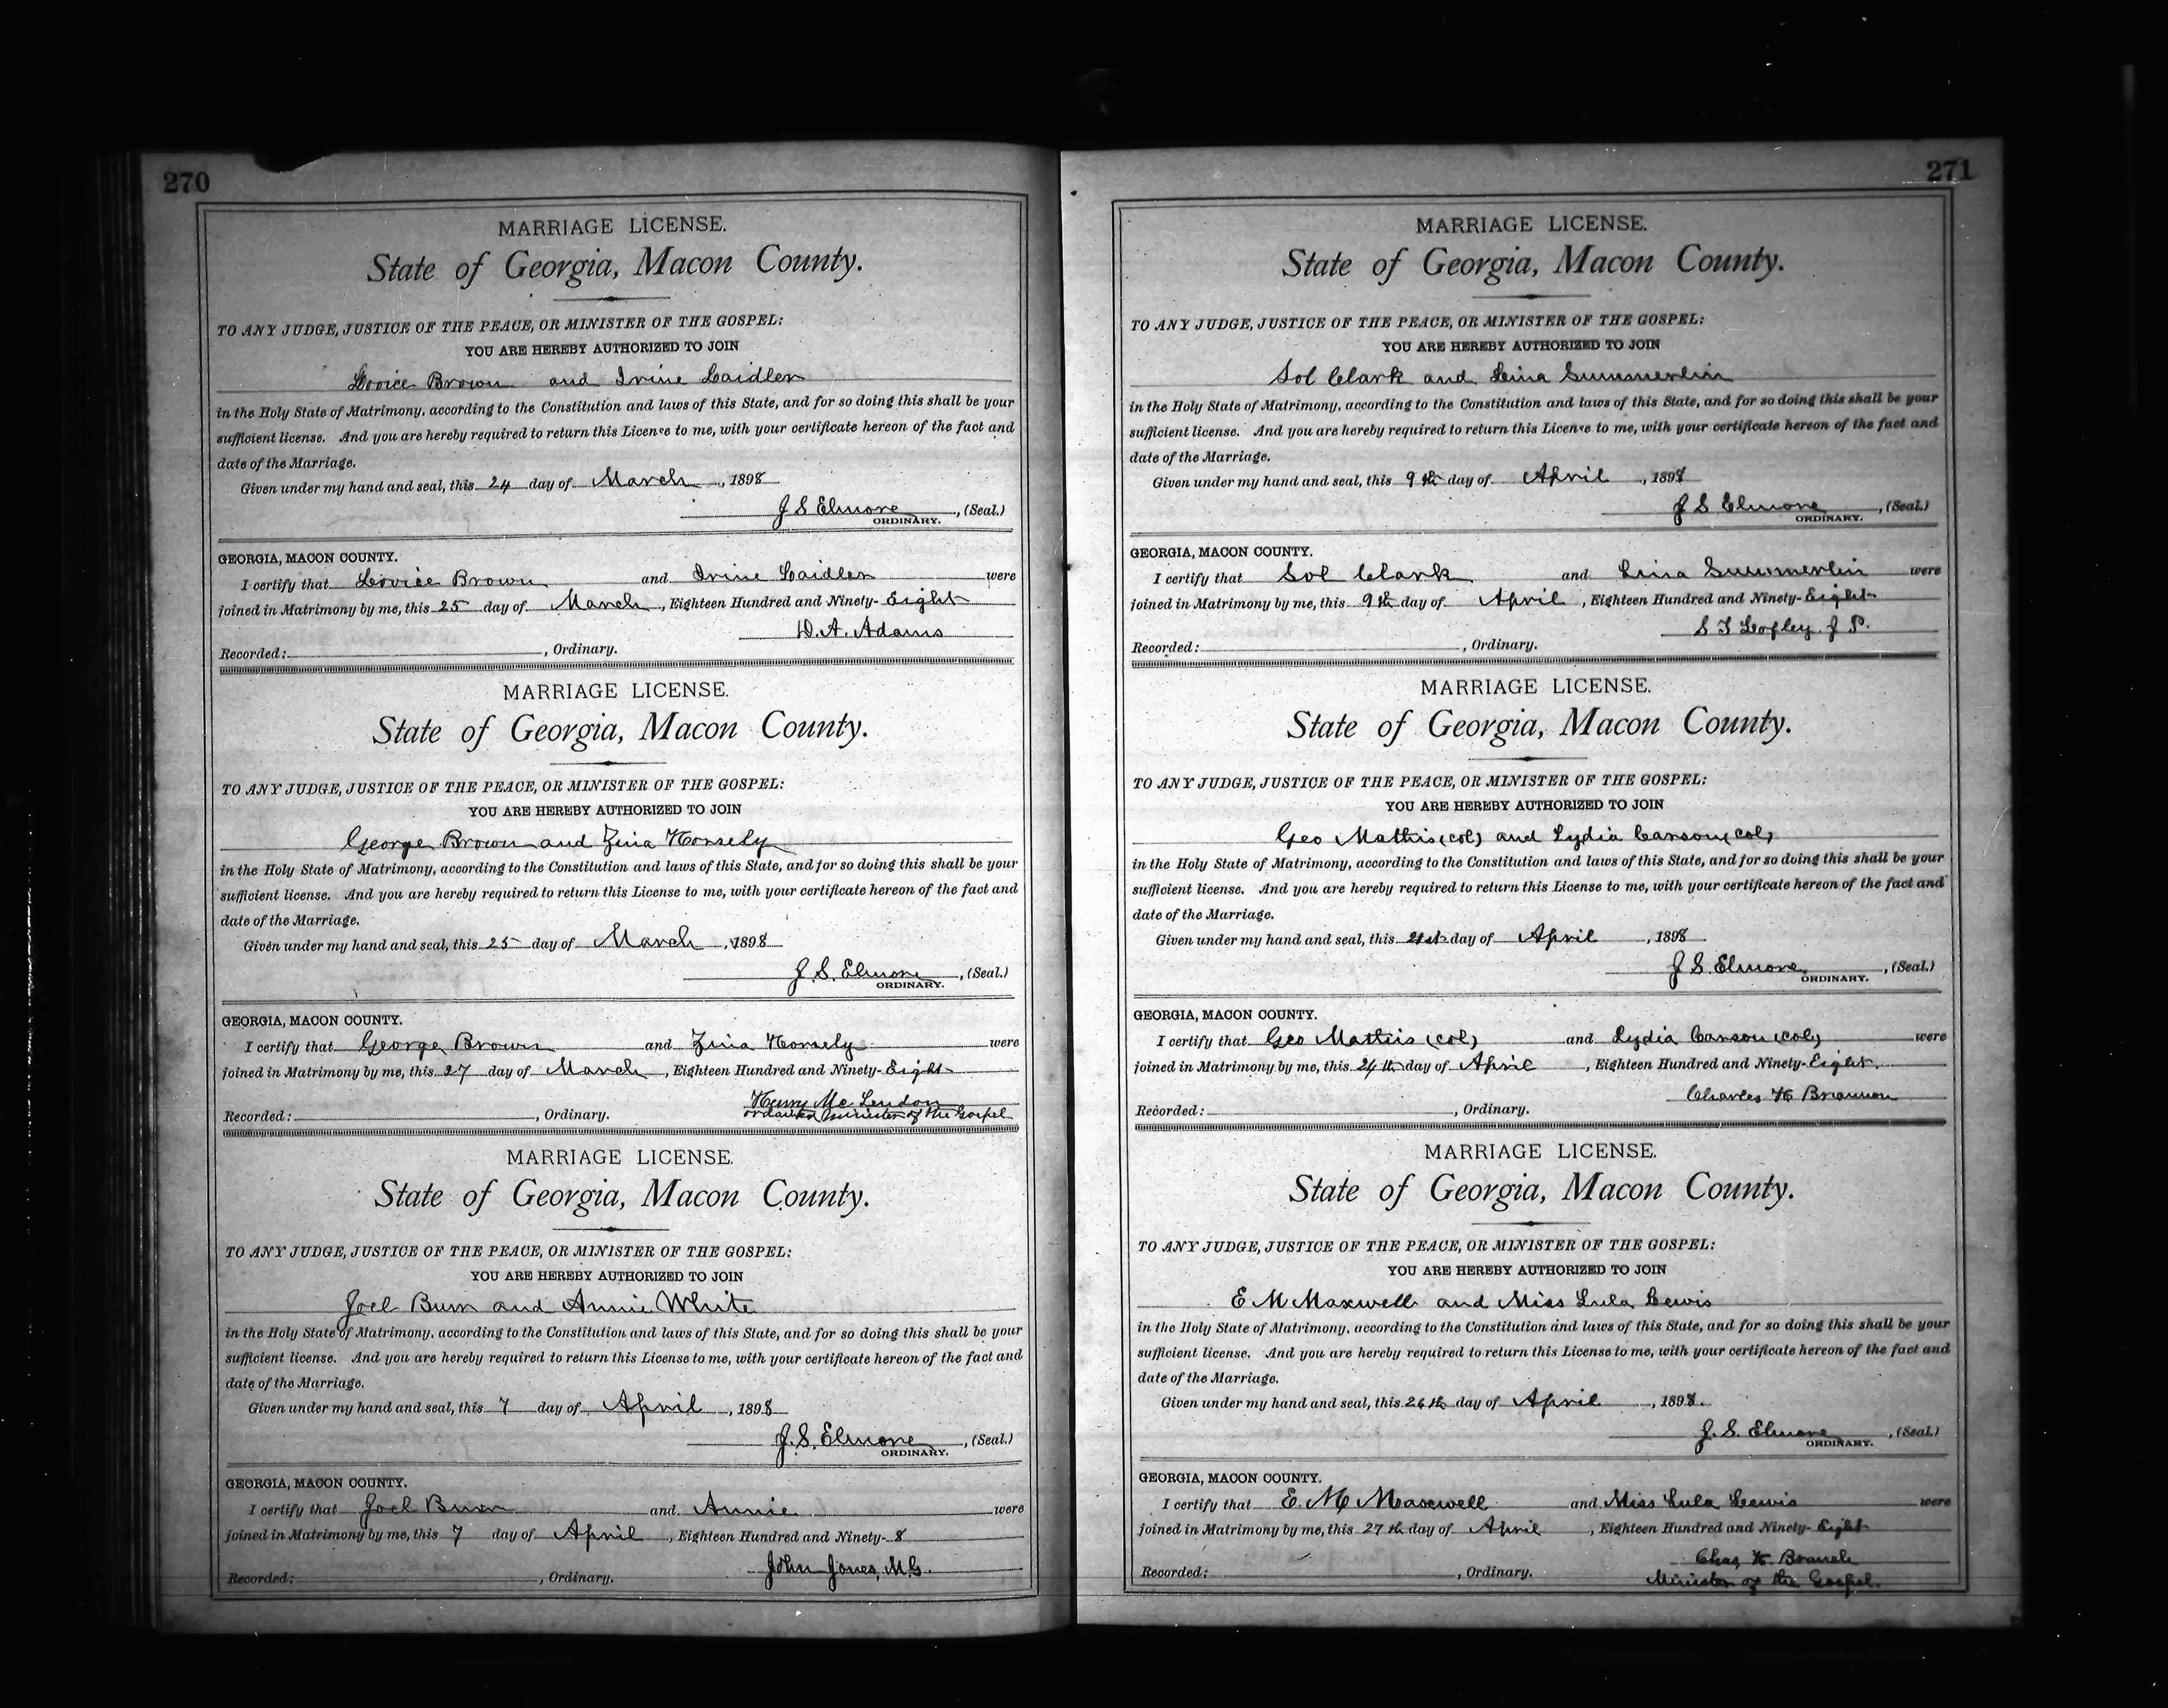 270
MARRIAGE LICENSE.
State of Georgia, Macon County.
TO ANY JUDGE, JUSTICE OF THE PEACE, OR MINISTER OF THE GOSPEL:
YOU ARE HEREBY AUTHORIZED TO JOIN
Lovice Brown and Irine Laidler
in the Holy State of Matrimony, according to the Constitution and laws of this State, and for so doing this shall be your
sufficient license. And you are hereby required to return this License to me, with your certificate hereon of the fact and
date of the Marriage.
Given under my hand and seal, this 24 day of March, 1898
J S Elmore, (Seal.)
ORDINARY.
GEORGIA, MACON COUNTY.
I certify that Lovice Brown and Irine Laidler were
joined in Matrimony by me, this 25 day of March, Eighteen Hundred and Ninety-Eight
D. A. Adams
Recorded: , Ordinary.
MARRIAGE LICENSE.
State of Georgia, Macon County.
TO ANY JUDGE, JUSTICE OF THE PEACE, OR MINISTER OF THE GOSPEL:
YOU ARE HEREBY AUTHORIZED TO JOIN
George Brown and Zina Horsely
in the Holy State of Matrimony, according to the Constitution and laws of this State, and for so doing this shall be your
sufficient license. And you are hereby required to return this License to me, with your certificate hereon of the fact and
date of the Marriage.
Given under my hand and seal, this 25 day of March, 1898
J. S. Elmore, (Seal.)
ORDINARY.
GEORGIA, MACON COUNTY.
I certify that George Brown and Zina Horsely were
joined in Matrimony by me, this 27 day of March, Eighteen Hundred and Ninety-Eight
Henry Mc Lendon
Recorded: , Ordinary. ordained minister of the Gospel
MARRIAGE LICENSE.
State of Georgia, Macon County.
TO ANY JUDGE, JUSTICE OF THE PEACE, OR MINISTER OF THE GOSPEL:
YOU ARE HEREBY AUTHORIZED TO JOIN
Joel Burn and Annie White
in the Holy State of Matrimony, according to the Constitution and laws of this State, and for so doing this shall be your
sufficient license. And you are hereby required to return this License to me, with your certificate hereon of the fact and
date of the Marriage.
Given under my hand and seal, this 7 day of April, 1898
J. S. Elmore, (Seal.)
ORDINARY.
GEORGIA, MACON COUNTY.
I certify that Joel Burn and Annie were
joined in Matrimony by me, this 7 day of April, Eighteen Hundred and Ninety-8
John Jones, M.G.
Recorded: , Ordinary.
271
MARRIAGE LICENSE.
State of Georgia, Macon County.
TO ANY JUDGE, JUSTICE OF THE PEACE, OR MINISTER OF THE GOSPEL:
YOU ARE HEREBY AUTHORIZED TO JOIN
Sol Clark and Lina Summerlin
in the Holy State of Matrimony, according to the Constitution and laws of this State, and for so doing this shall be your
sufficient license. And you are hereby required to return this License to me, with your certificate hereon of the fact and
date of the Marriage.
Given under my hand and seal, this 9th day of April, 1898
J S Elmore, (Seal.)
ORDINARY.
GEORGIA, MACON COUNTY.
I certify that Sol Clark and Lina Summerlin were
joined in Matrimony by me, this 9th day of April, Eighteen Hundred and Ninety-Eight
S T Lofley J P.
Recorded: , Ordinary.
MARRIAGE LICENSE.
State of Georgia, Macon County.
TO ANY JUDGE, JUSTICE OF THE PEACE, OR MINISTER OF THE GOSPEL:
YOU ARE HEREBY AUTHORIZED TO JOIN
Geo Mathis (col) and Lydia Carson (col)
in the Holy State of Matrimony, according to the Constitution and laws of this State, and for so doing this shall be your
sufficient license. And you are hereby required to return this License to me, with your certificate hereon of the fact and
date of the Marriage.
Given under my hand and seal, this 21st day of April, 1898
J S. Elmore, (Seal.)
ORDINARY.
GEORGIA, MACON COUNTY.
I certify that Geo Mathis (col) and Lydia Carson (col) were
joined in Matrimony by me, this 24th day of April, Eighteen Hundred and Ninety-Eight.
Charles H Brannon
Recorded: , Ordinary.
MARRIAGE LICENSE.
State of Georgia, Macon County.
TO ANY JUDGE, JUSTICE OF THE PEACE, OR MINISTER OF THE GOSPEL:
YOU ARE HEREBY AUTHORIZED TO JOIN
E M Maxwell and Miss Lula Lewis
in the Holy State of Matrimony, according to the Constitution and laws of this State, and for so doing this shall be your
sufficient license. And you are hereby required to return this License to me, with your certificate hereon of the fact and
date of the Marriage.
Given under my hand and seal, this 26th day of April, 1898.
J. S. Elmore, (Seal.)
ORDINARY.
GEORGIA, MACON COUNTY.
I certify that E. M Maxwell and Miss Lula Lewis were
joined in Matrimony by me, this 27th day of April, Eighteen Hundred and Ninety-Eight
Chas, H. Branch
Recorded: , Ordinary. Minister of the Gospel.